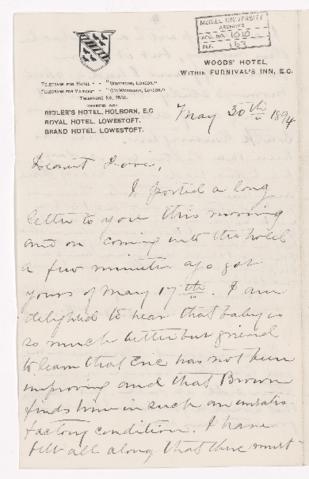 McGILL UNIVERSITY
ARCHIVES
ACC. NO. 1010
REF. 163
WOODS' HOTEL,
WITHIN FURNIVAL'S INN, E.C.
RIDLER'S HOTEL, HOLBORN, E.C.
ROYAL HOTEL, LOWESTOFT.
GRAND HOTEL, LOWESTOFT.
May 30th 1894
Dearest
I posted a long
letter to you this morning
and on coming into the hotel
a few minutes ago got
yours of May 17th. I am
delighted to hear that baby is
so much better but grieved
to learn that Eric has not been
improving and that Brown
finds him in such an unsatis-
factory condition. I have
felt all along that there must